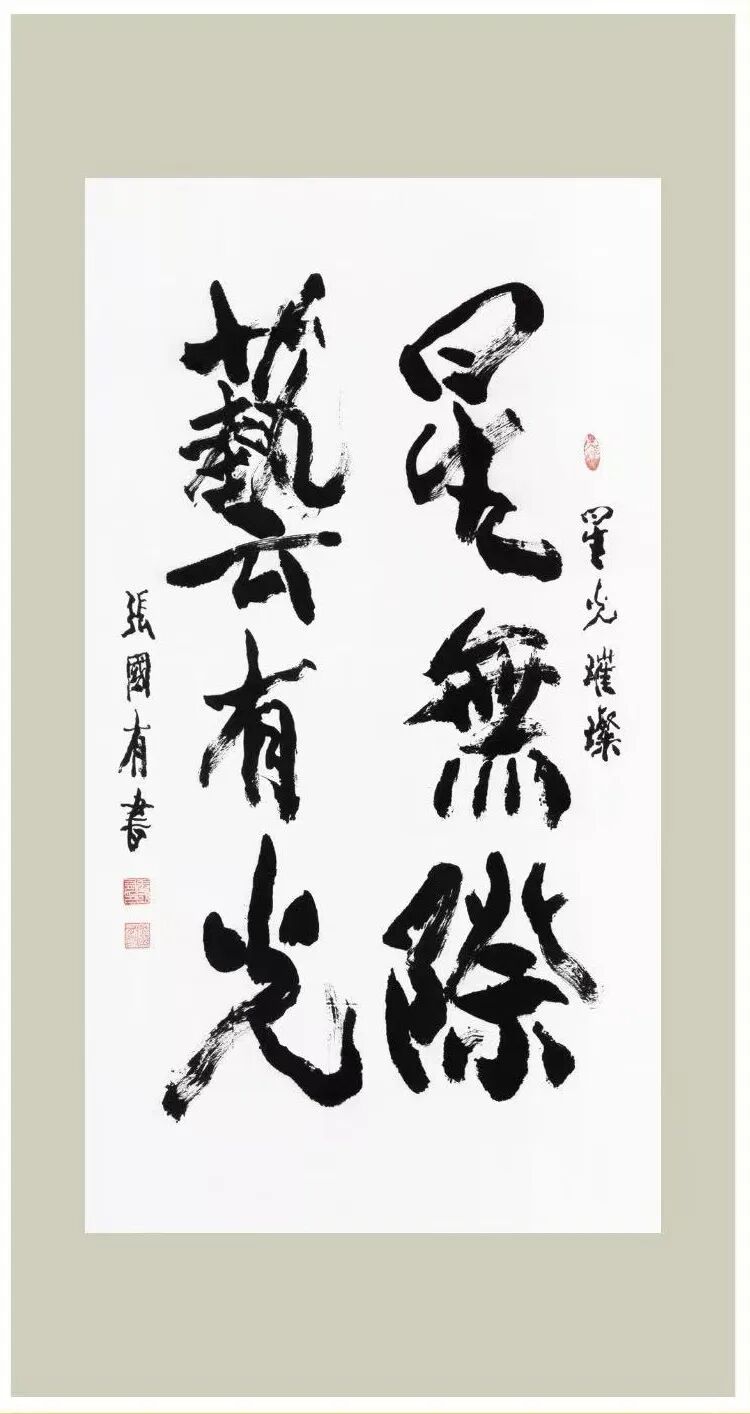 星光璀璨
星無際
藝有光
張國有書